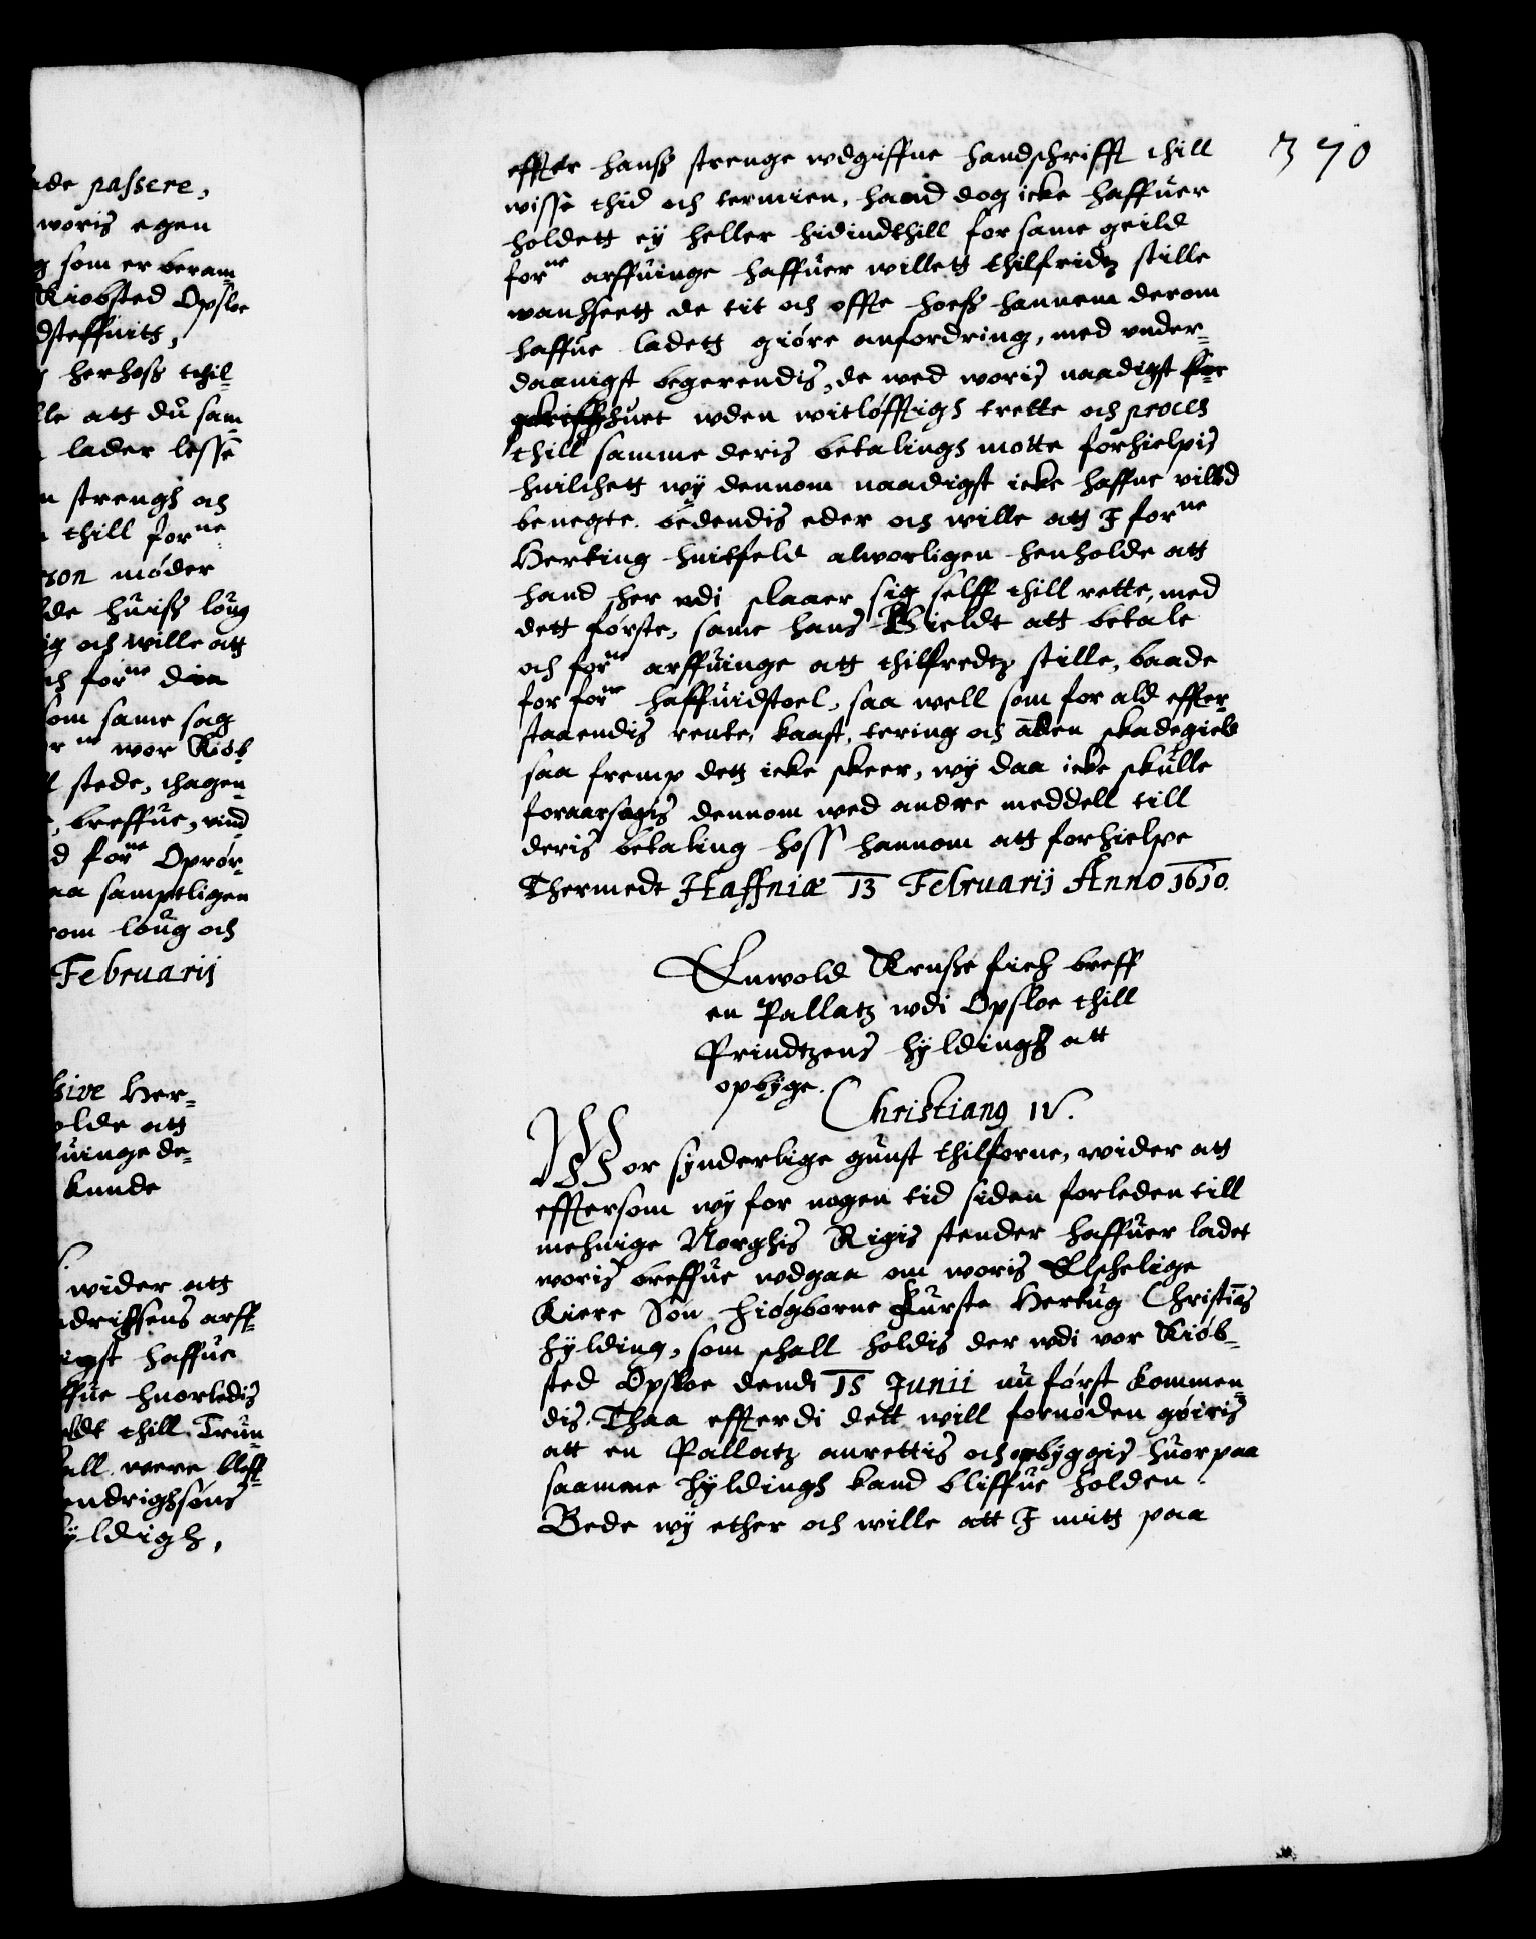 ade passere,
woris egen
g som er beram¬
Kiøbsted Opsloe
dsteffnitt,
herhoss thil¬
lle att du sam
lader lesse
n strengh och
thill forne
son møder
lde huiss loug
ig och wille att
ch forne din
som same sag
r ne wor Kiøb
l stede, thagen
, breffue, vind
d forne Oprør¬
aa samptligen
rom loug och
Februarij
sive Her¬
olde att
uinge de¬
kunde
wider att
ndrissens arff
igst haffue
ffue huorledis
dt thill Trun
all were bleff
endrighsøns
yldigh,
370
effter hanss strenge wdgiffne handschrifft thill
wisse thid och termien, hand dog icke haffuer
holdett ey heller hidindthill for same geild
forne arffuinge haffuer willett thilfridtz stille
wanhseett de tit och offte hoess hannem derom
haffue ladett giøre anfordring, med vnder¬
daanigst begerendis, de wed woris naadigst for
huet wden witløfftigh trette och process
thill samme deris betalings motte forhielpis
huilchett wy dennom naadigst icke haffue villd
benegte. bedendis eder och wille att I forne
Herting Huitfeld alworligen henholde att
hand her wdi slaaer sig selff thill rette, med
dett første, same hans Gieldt att betale
och forne arffuinge att thilfredtz stille, baade
for forne haffuidstoel, saa well som for ald effter
staaendis rente, kaast, tering och anden skadegield
saa fremp dett icke skeer, wy daa icke skulle
foraarsagis dennom wed andre meddell till
deris betaling hoss hannom att forhielpe
Thermedt Haffniæ 13 Februarij Anno 1610.
Enwold Kruse fich breff
en Pallatz wdi Opsloe thill
Prindtzens hyldingh att
opbyge. Christianus IV.
Wor synderlige gunst thilforne, wider att
efftersom wy for nogen tid siden forleden till
mehnige Norghis Rigis stender haffuer ladet
woris breffue wdgaa om woris Elschelige
Kiere Søn Høgborne Furste Hertug Christians
hylding, som schall holdis der wdi vor Kiøb¬
sted Opsloe dend 15 Junii nu først kommen¬
dis. Thaa effterdi dett will fornøden giøris
att en Pallatz anrettis och opbyggis huorpaa
saamme hyldingh kand bliffue holden.
Bede wy ether och wille att I mitt paa